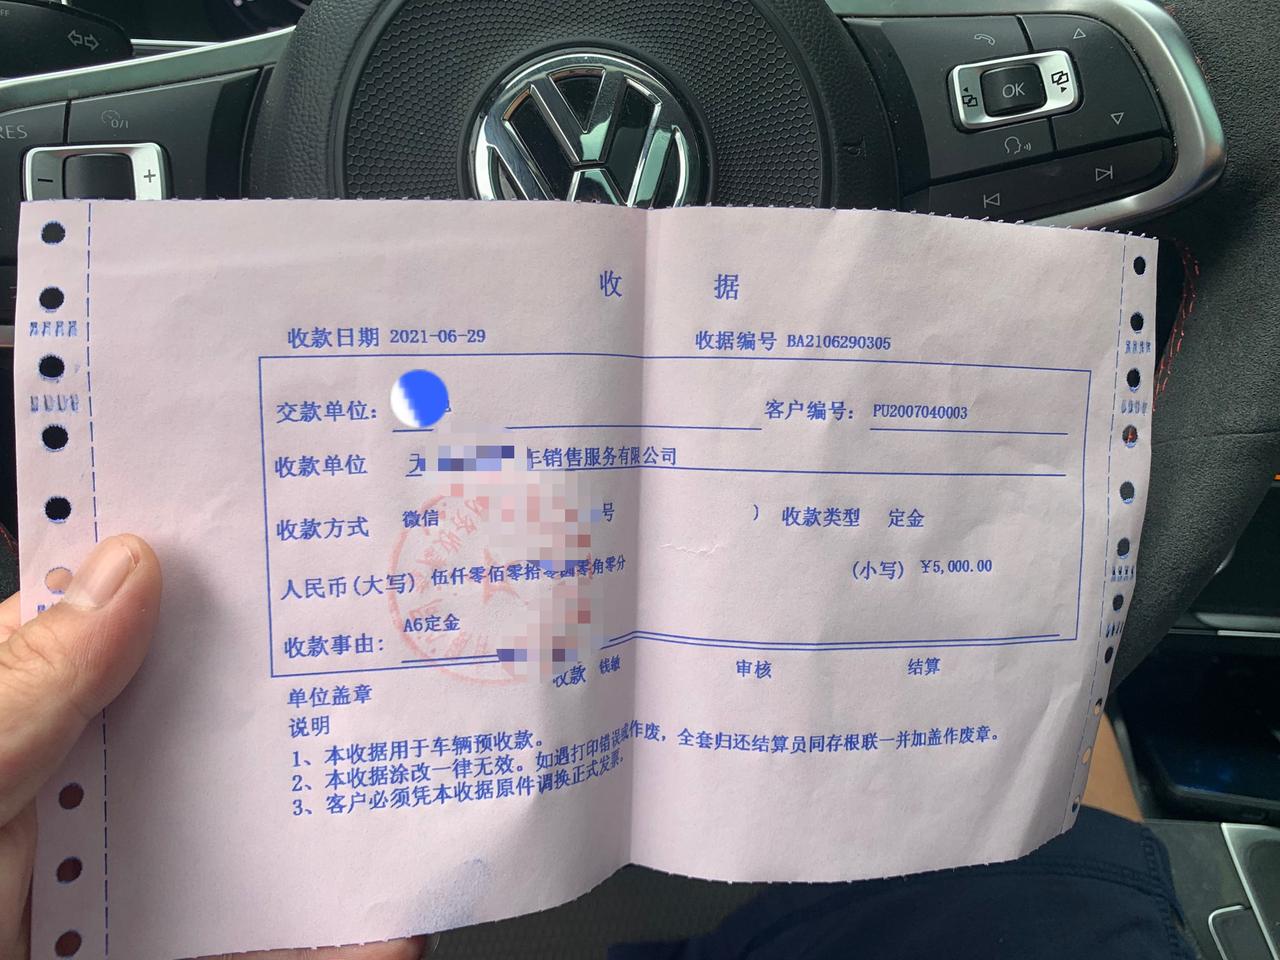 RES
0/I
− +
OK
收 据
收款日期 2021-06-29 收据编号 BA2106290305
交款单位: 客户编号: PU2007040003
收款单位 车销售服务有限公司
收款方式 微信 号 ) 收款类型 定金
人民币(大写) 伍仟零佰零拾零圆零角零分 (小写) ¥5,000.00
收款事由: A6定金
单位盖章 收款 钱敏 审核 结算
说明
1、本收据用于车辆预收款。
2、本收据涂改一律无效。如遇打印错误或作废，全套归还结算员同存根联一并加盖作废章。
3、客户必须凭本收据原件调换正式发票。